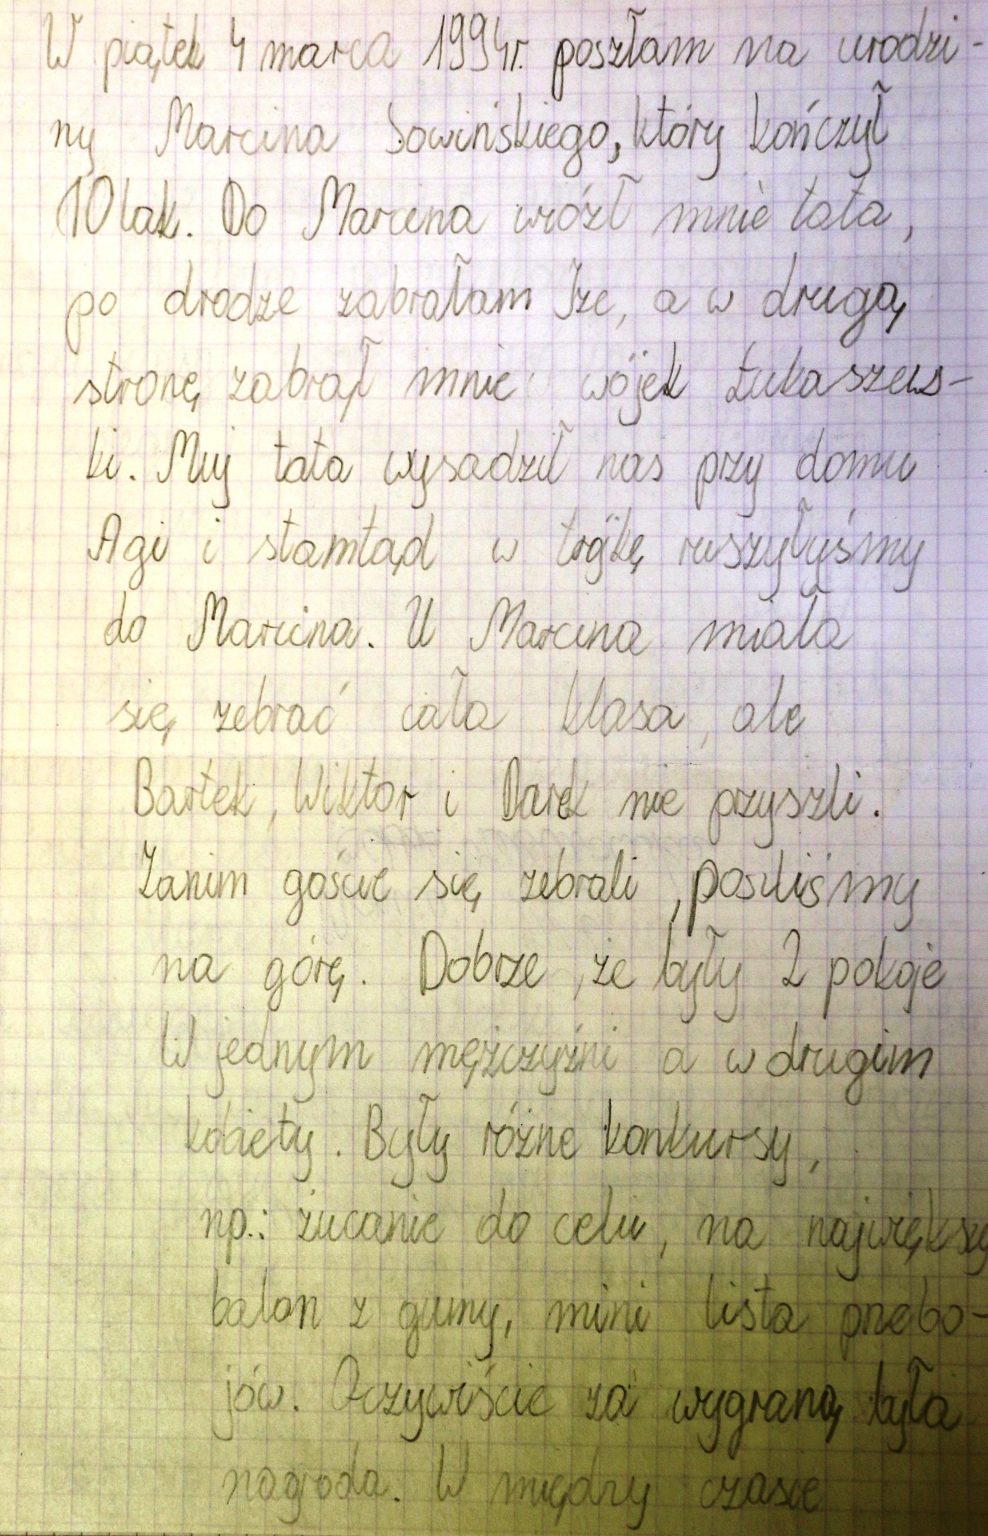 W piątek 4 marca 1994r. poszłam na urodzi-
ny Marcina Sowińskiego, który kończył
10 lak. Do Marcina wiózł mnie tata,
po drodze zabrałam Ize, a w drugą
stronę zabrął mnie wójek Łukaszews-
ki. Muj tata wysadził nas przy domu
Agi i stamtąd w trójkę ruszyłyśmy
do Marcina. U Marcina miała
się zebrać cała klasa, ale
Bartek, Wiktor i Darek nie przyszli.
Zanim goście się zebrali, poszliśmy
na górę. Dobrze, że były 2 pokoje
W jednym mężczyźni a w drugim
kobiety. Były różne konkursy,
np.: żucanie do celu, na największy
balon z gumy, mini lista przebo-
jów. Oczywiście za wygraną była
nagroda. W między czasie